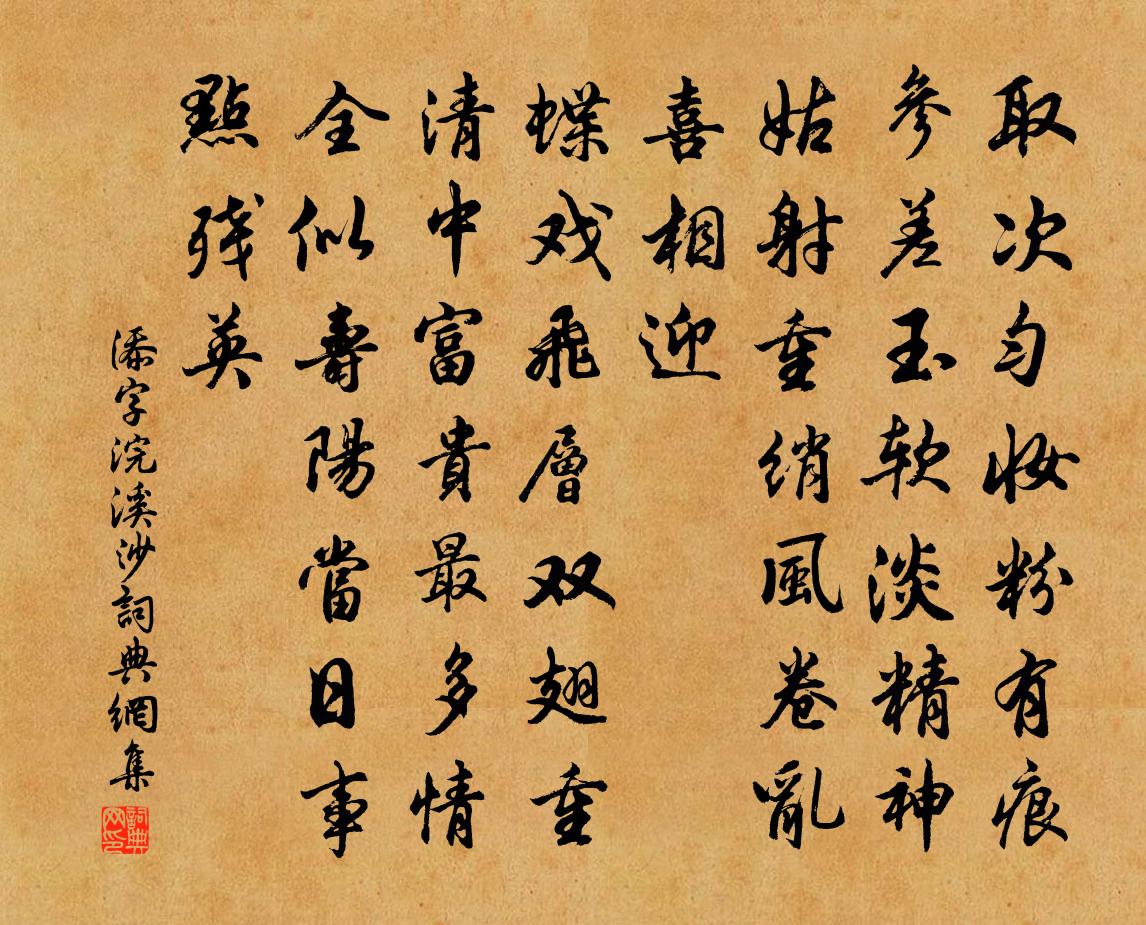 取次匀妆粉有痕
參差玉软淡精神
姑射重绡風卷亂
喜相迎
蝶戏飛層双翅重
清中富貴最多情
全似壽陽當日事
點殘英
添字浣溪沙詞典網集
詞典网印